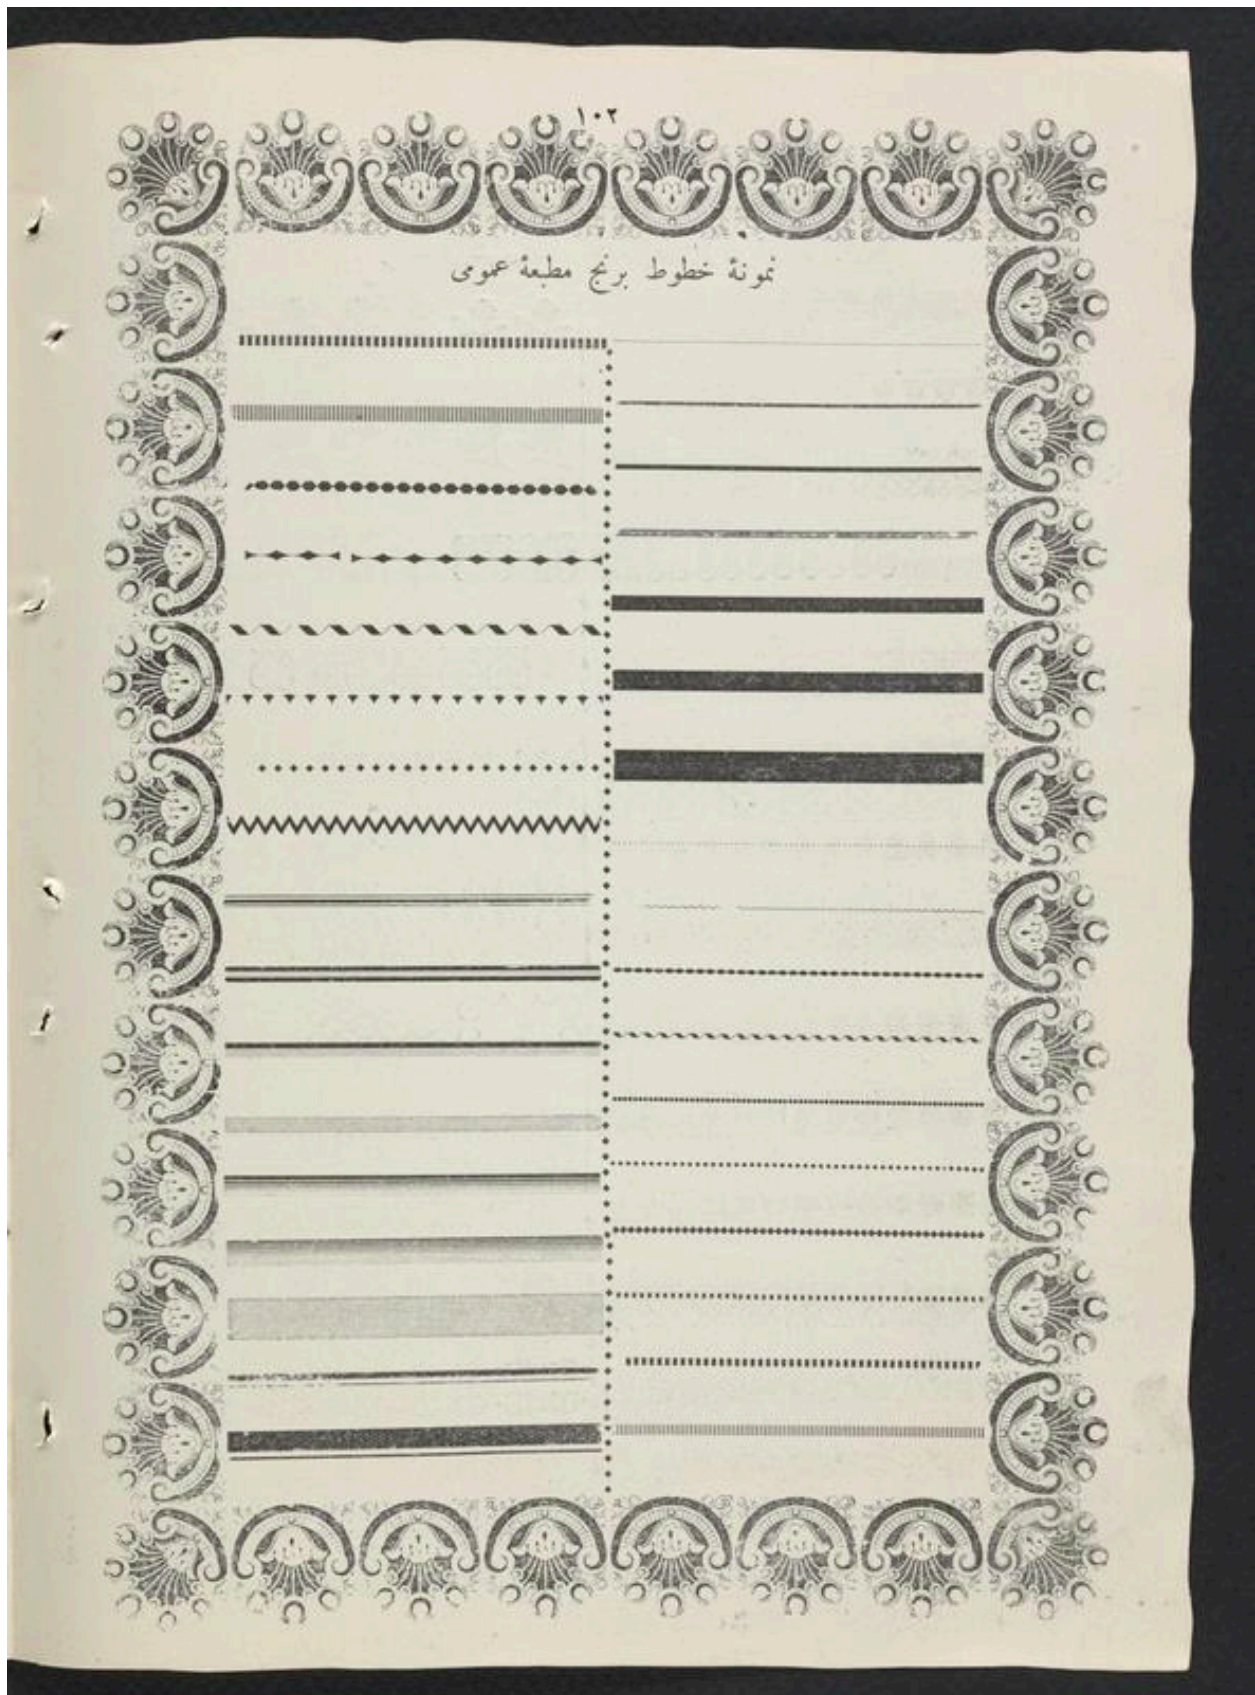 ۱۰۲
نمونهٔ خطوط برنج مطبعهٔ عمومی